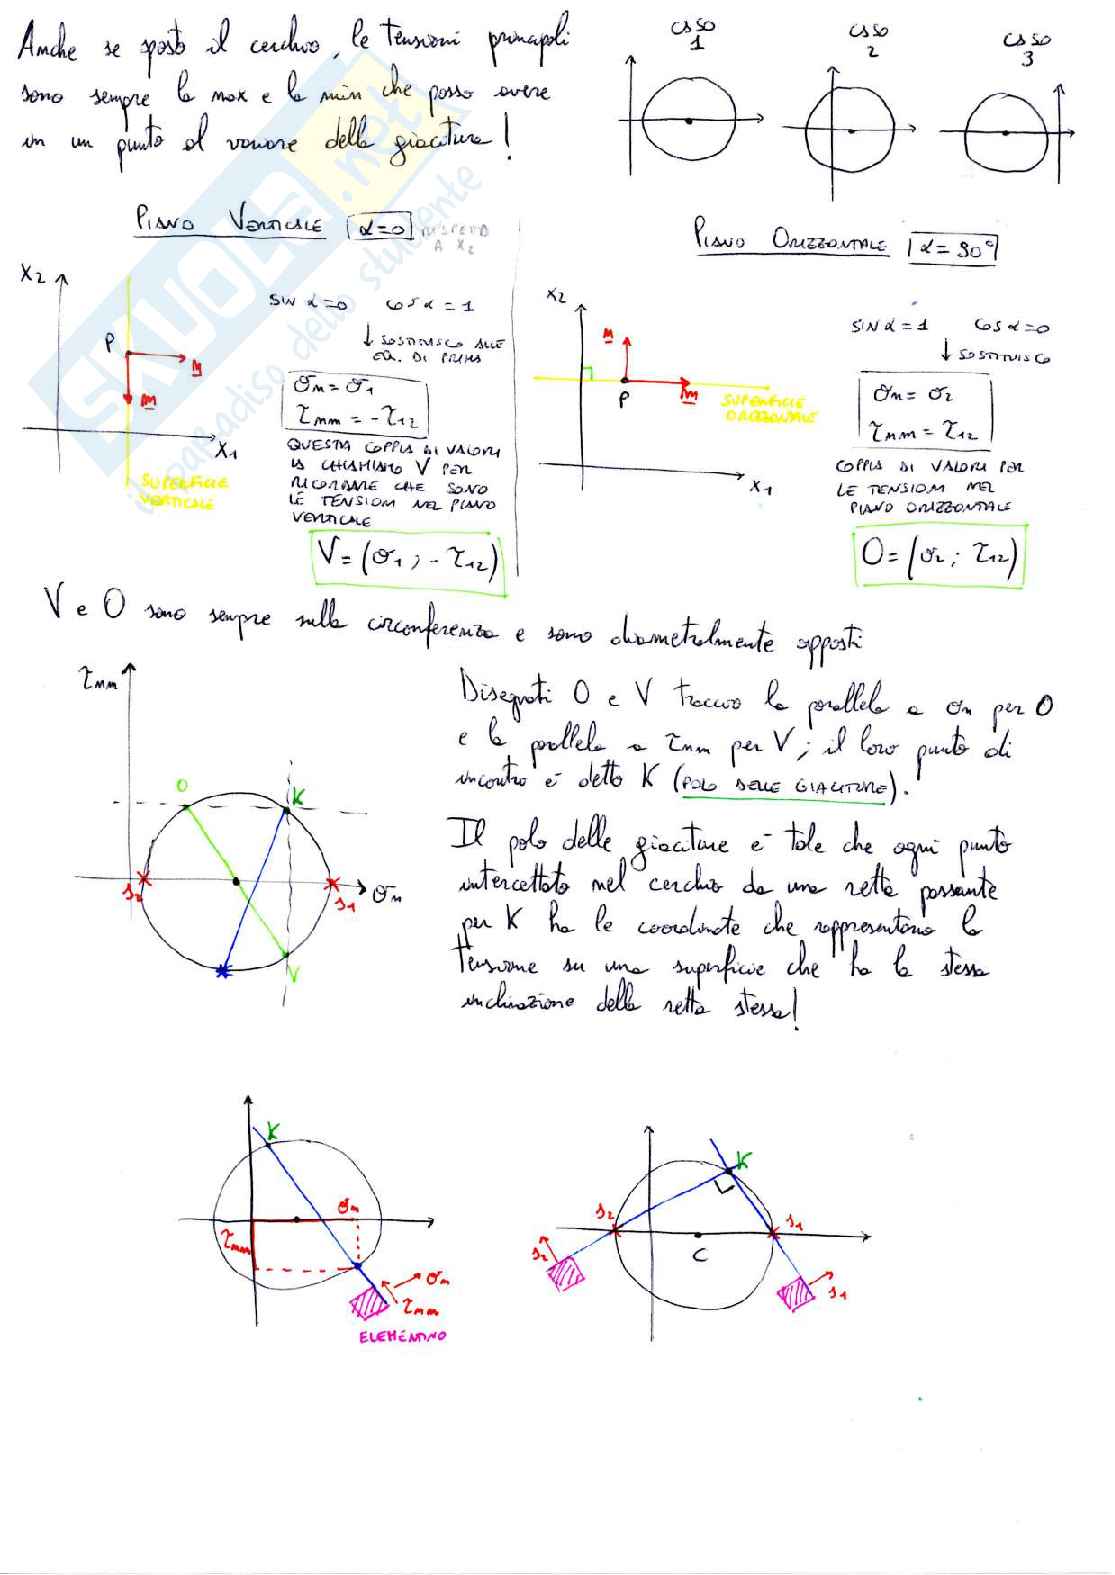 Anche se sposto il cerchio, le tensioni principali
sono sempre la max e la min che posso avere
in un punto al variare della giacitura!
CASO
1
CASO
2
CASO
3
SKUOLA.net
il paradiso dello studente
PIANO VERTICALE α=0 RISPETTO
A X2
X2
P
n
m
X1
SUPERFICIE
VERTICALE
sin α=0 cos α=1
↓ SOSTITUISCO ALLE
EQ. DI PRIMA
σn = σ1
τmn = -τ12
QUESTA COPPIA DI VALORI
LA CHIAMIAMO V PER
RICORDARE CHE SONO
LE TENSIONI NEL PIANO
VERTICALE
V=(σ1 ; -τ12)
PIANO ORIZZONTALE α=90°
X2
n
P
m
SUPERFICIE
ORIZZONTALE
X1
SIN α=1 cos α=0
↓ SOSTITUISCO
σn = σ2
τmn = τ12
COPPIA DI VALORI PER
LE TENSIONI NEL
PIANO ORIZZONTALE
O=(σ2 ; τ12)
V e O sono sempre sulla circonferenza e sono diametralmente opposti
τmn
O
K
S2
S1
σn
V
Disegnati O e V traccio la parallela a σn per O
e la parallela a τnm per V; il loro punto di
incontro è detto K (POLO DELLE GIACITURE).
Il polo delle giaciture è tale che ogni punto
intercettato nel cerchio da una retta passante
per K ha le coordinate che rappresentano la
tensione su una superficie che ha la stessa
inclinazione della retta stessa!
K
σn
τmn
σn
τmn
ELEMENTINO
K
S2
S1
C
S2
S1